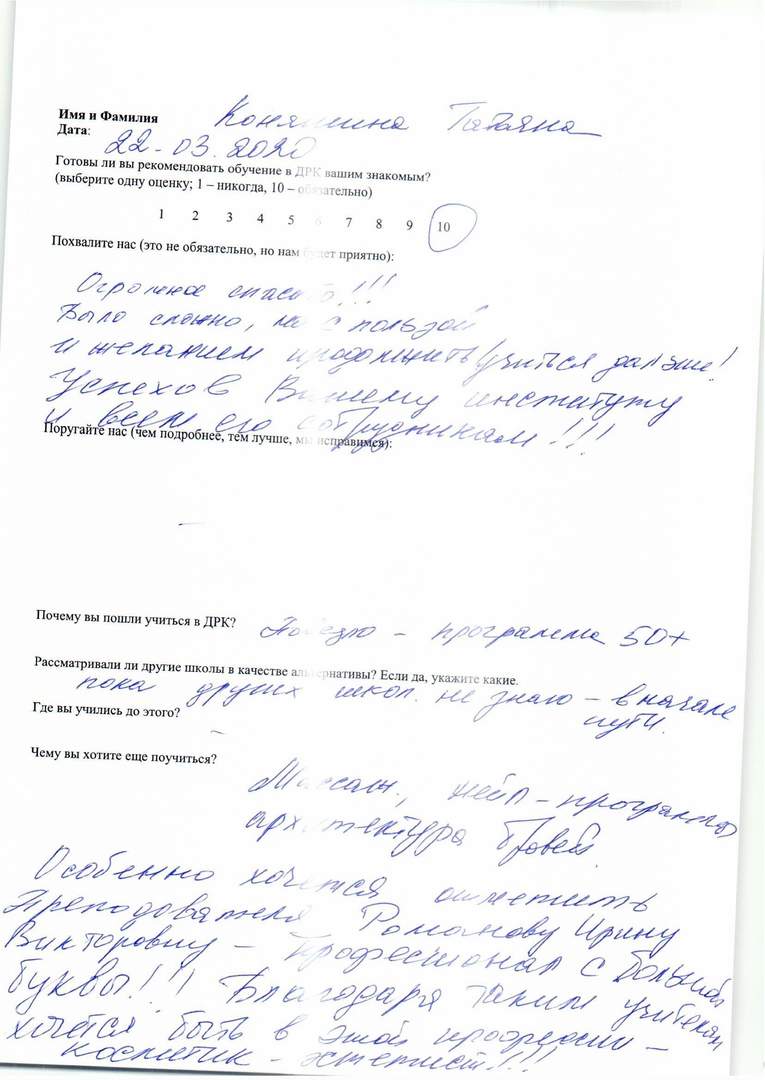 Имя и Фамилия Коняшина Татьяна
Дата: 22-03.2020
Готовы ли вы рекомендовать обучение в ДРК вашим знакомым?
(выберите одну оценку; 1 – никогда, 10 – обязательно)
1 2 3 4 5 6 7 8 9 10
Похвалите нас (это не обязательно, но нам будет приятно):
Огромное спасибо!!!
Было сложно, но с пользой
и желанием продолжить учиться дальше!
Успехов Вашему институту
и всем его сотрудникам!!!
Поругайте нас (чем подробнее, тем лучше, мы исправимся):
—
Почему вы пошли учиться в ДРК? Повезло – программа 50+
Рассматривали ли другие школы в качестве альтернативы? Если да, укажите какие.
пока других школ. не знаю – в начале
пути.
Где вы учились до этого? –
Чему вы хотите еще поучиться?
Массаж, нейл – программы
архитектура бровей.
Особенно хочется отметить
Преподователя Романову Ирину
Викторовну – Профессионал с большой
буквы!!! Благодаря таким учителям
хочется быть в этой профессии –
косметик – эстетист!!!